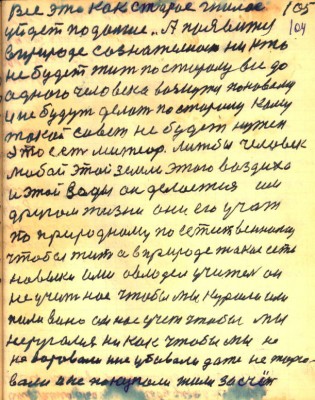 Все это как старое гнилое 105
уйдет подальше. А появится 104
в природе сознательно никто
не будет жить по старому все до
одного человека возмутся по новому
и не будут делать по старому кому
такой совет не будет нужен
это есть лиж бы человек
любой этой земли этого воздуха
и этой воды он делается им
другом жизни они его учат
по природному по естественному
чтобы жить а в природе такие есть
навыки ими овладел учител он
не учит нас чтобы мы курили или
пили вино он нас учит чтобы мы
не ругалися никак чтобы мы не
не воровали не убивали даже не торго
вали а не покупали жили за счёт